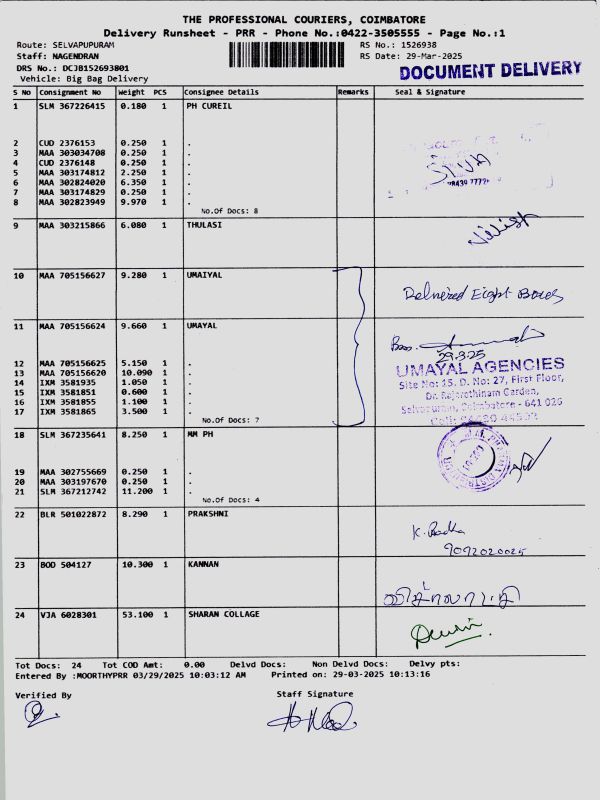 THE PROFESSIONAL COURIERS, COIMBATORE
Delivery Runsheet - PRR - Phone No.:0422-3505555 - Page No.:1
Route: SELVAPUPURAM
RS No.: 1526938
Staff: NAGENDRAN
RS Date: 29-Mar-2025
DRS No.: DCJB152693801
Vehicle: Big Bag Delivery
DOCUMENT DELIVERY
S No Consignment No Weight PCS Consignee Details Remarks Seal & Signature
1 SLM 367226415 0.180 1 PH CUREIL
2 CUD 2376153 0.250 1 .
3 MAA 303034708 0.250 1 .
4 CUD 2376148 0.250 1 .
5 MAA 303174812 2.250 1 .
6 MAA 302824020 6.350 1 .
7 MAA 303174829 0.250 1 .
8 MAA 302823949 9.970 1 .
No.Of Docs: 8
9 MAA 303215866 6.080 1 THULASI
10 MAA 705156627 9.280 1 UMAIYAL
Delivered Eight Boxes
11 MAA 705156624 9.660 1 UMAYAL
29-3-25
12 MAA 705156625 5.150 1 .
13 MAA 705156620 10.090 1 .
14 IXM 3581935 1.050 1 .
15 IXM 3581851 0.600 1 .
16 IXM 3581855 1.100 1 .
17 IXM 3581865 3.500 1 .
No.Of Docs: 7
UMAYAL AGENCIES
Site No: 15, D. No: 27, First Floor,
Dr. Rajarathinam Garden,
Selvapuram, Coimbatore - 641 026
18 SLM 367235641 8.250 1 MM PH
19 MAA 302755669 0.250 1 .
20 MAA 303197670 0.250 1 .
21 SLM 367212742 11.200 1 .
No.Of Docs: 4
22 BLR 501022872 8.290 1 PRAKSHNI
K. Radha
9092020025
23 BOD 504127 10.300 1 KANNAN
24 VJA 6028301 53.100 1 SHARAN COLLAGE
Tot Docs: 24 Tot COD Amt: 0.00 Delvd Docs: Non Delvd Docs: Delvy pts:
Entered By :MOORTHYPRR 03/29/2025 10:03:12 AM Printed on: 29-03-2025 10:13:16
Verified By
Staff Signature